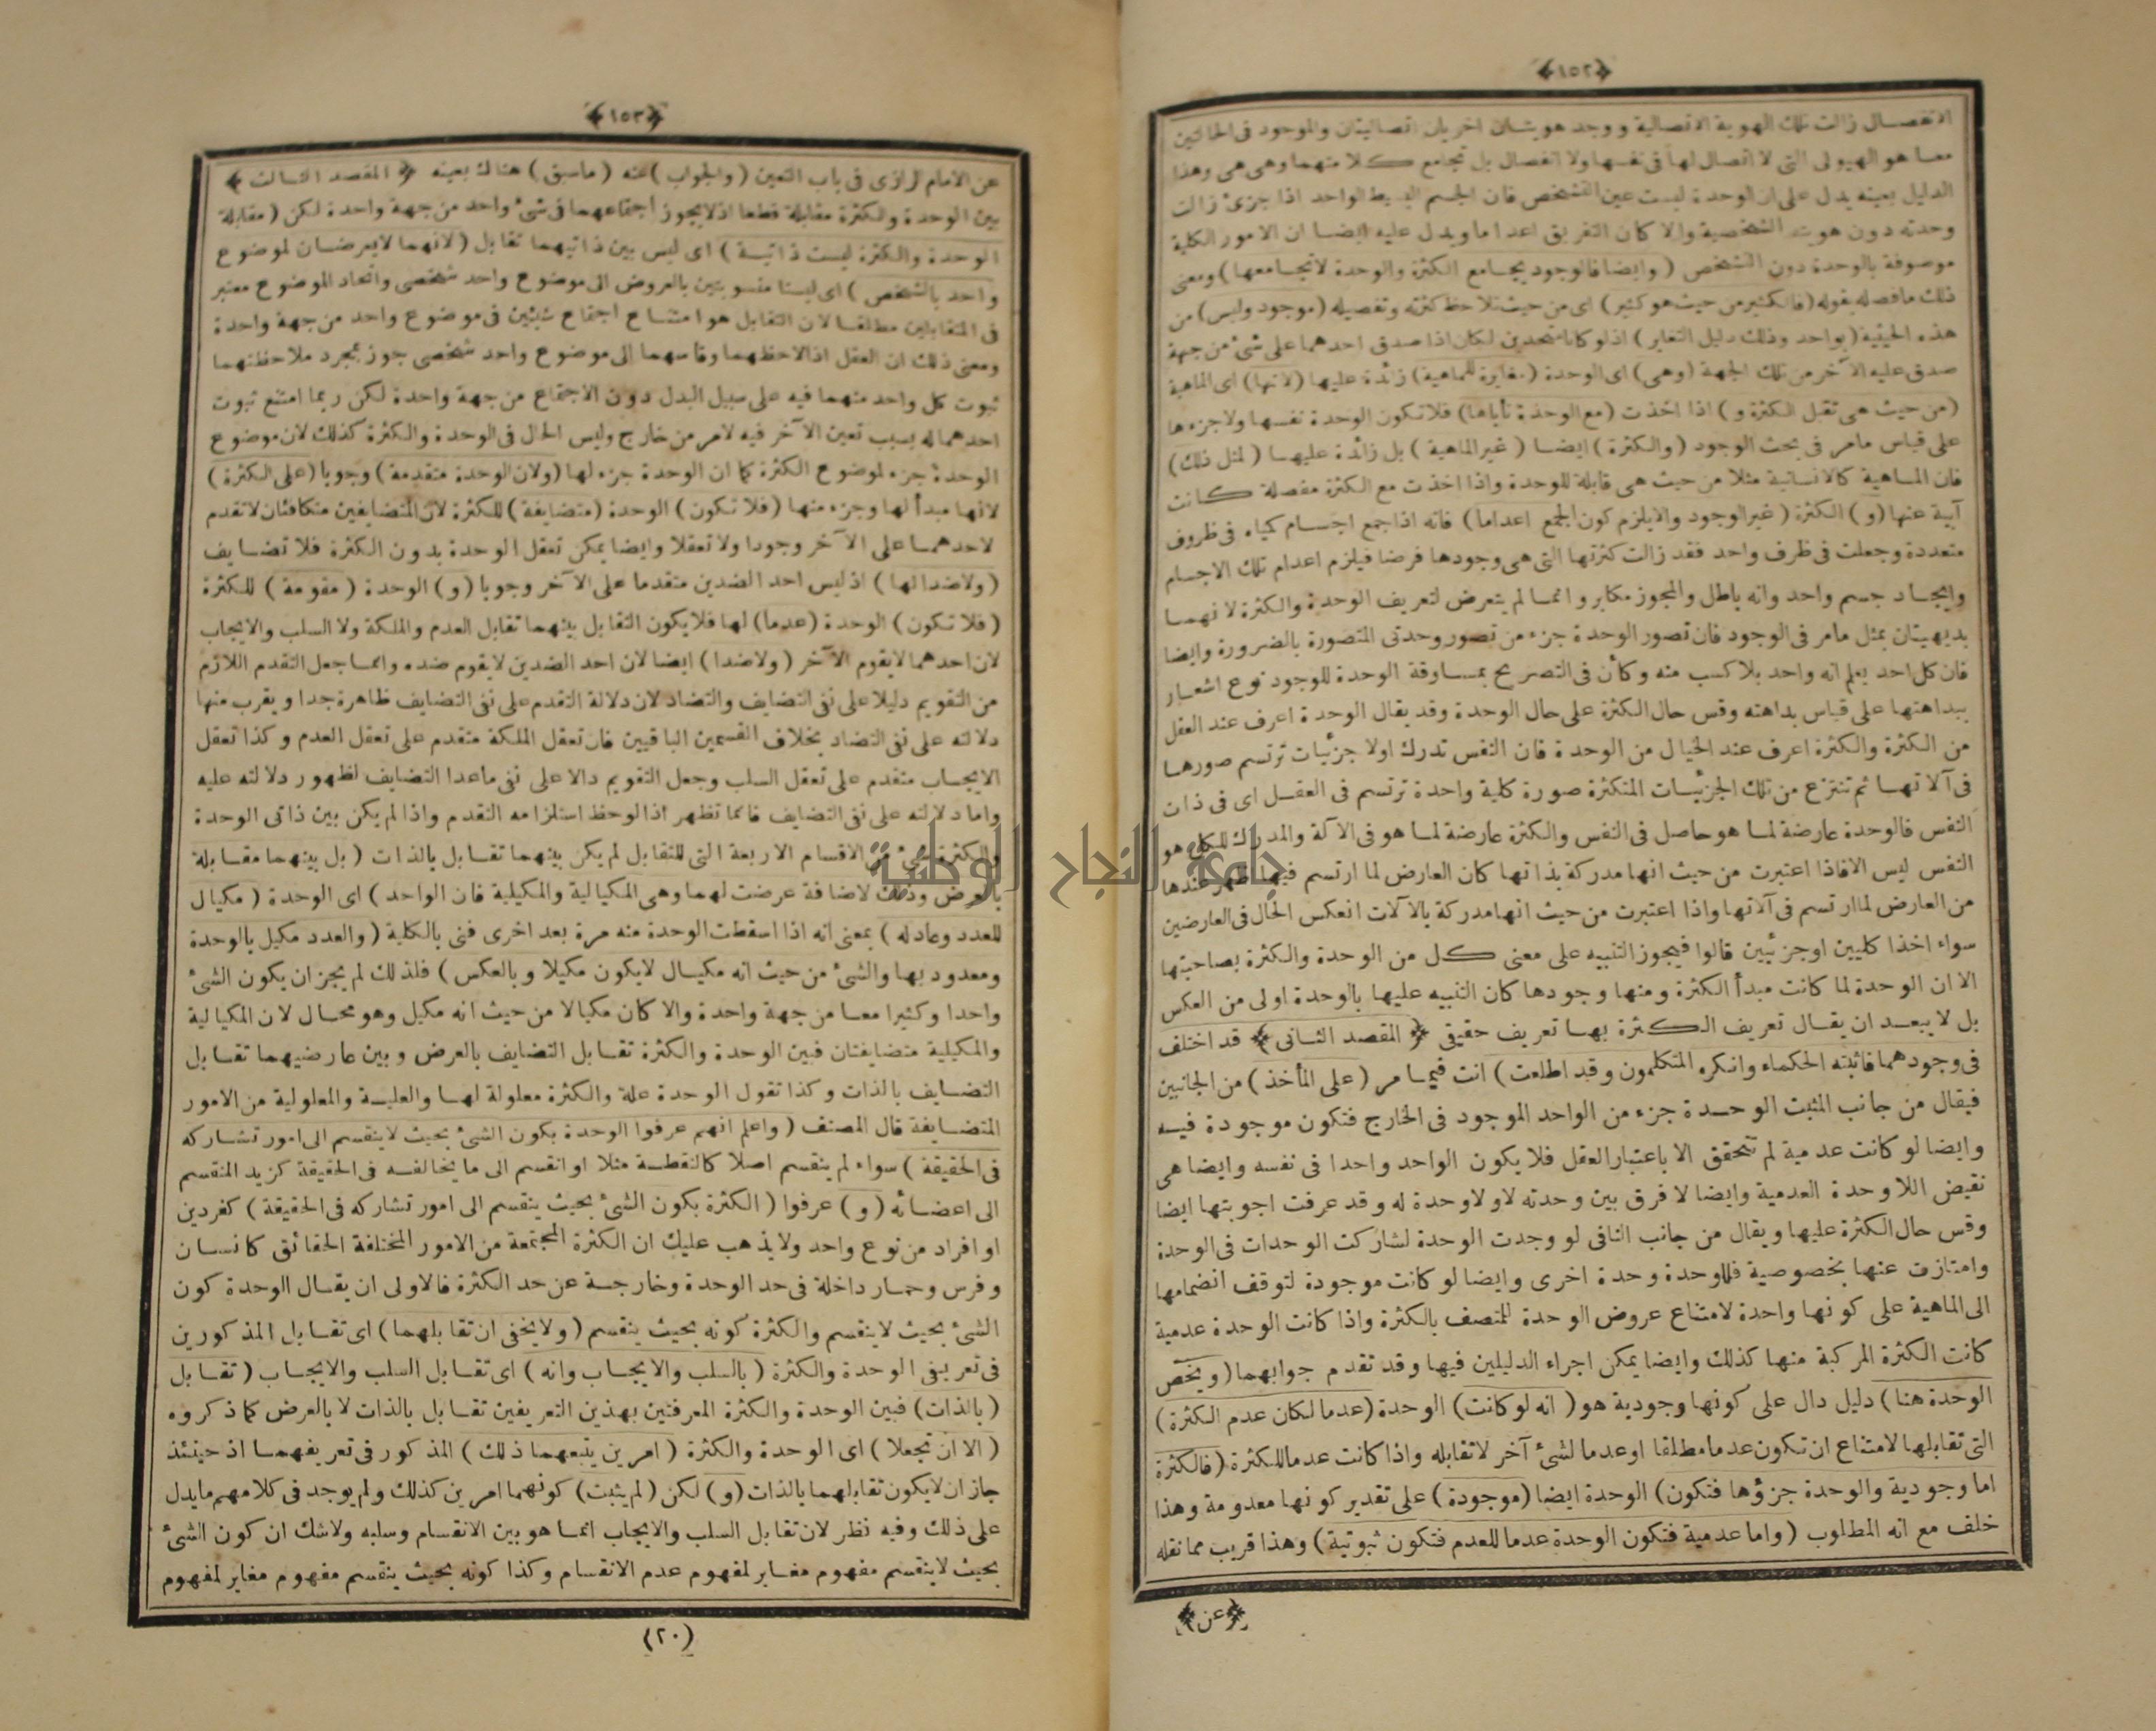 ﴿١٥٢﴾
الانفصال زالت تلك الهوية الاتصالية ووجد هويتان اخريان اتصاليتان والموجود فى الحالتين
معا هو الهيولى التى لا اتصال لها فى نفسها ولا انفصال بل تجامع كلا منهما وهى هى وهذا
الدليل بعينه يدل على ان الوحدة ليست عين التشخص فان الجسم البسيط الواحد اذا جزئ زالت
وحدته دون هويته الشخصية والا كان التفريق اعداما ويدل عليه ايضا ان الامور الكلية
موصوفة بالوحدة دون التشخص (وايضا فالوجود يجامع الكثرة والوحدة لا تجامعها) ومعنى
ذلك ما فصله بقوله (فالكثير من حيث هو كثير) اى من حيث تلاحظ كثرته وتفصيله (موجود وليس) من
هذه الحيثية (بواحد وذلك دليل التغاير) اذ لو كانا متحدين لكان اذا صدق احدهما على شئ من جهة
صدق عليه الآخر من تلك الجهة (وهى) اى الوحدة (مغايرة للماهية) زائدة عليها (لانها) اى الماهية
(من حيث هى تقبل الكثرة و) اذا اخذت (مع الوحدة تأباها) فلا تكون الوحدة نفسها ولا جزءها
على قياس مامر فى بحث الوجود (والكثرة) ايضا (غير الماهية) بل زائدة عليها (لمثل ذلك)
فان الماهية كالانسانية مثلا من حيث هى قابلة للوحدة واذا اخذت مع الكثرة مفصلة كانت
آبية عنها (و) الكثرة (غير الوجود والا يلزم كون الجمع اعداما) فانه اذا جمع اجسام كمياه فى ظروف
متعددة وجعلت فى ظرف واحد فقد زالت كثرتها التى هى وجودها فرضا فيلزم اعدام تلك الاجسام
وايجاد جسم واحد وانه باطل والمجوز مكابر وانما لم يتعرض لتعريف الوحدة والكثرة لانهما
بديهيتان بمثل مامر فى الوجود فان تصور الوحدة جزء من تصور وحدتى المتصورة بالضرورة وايضا
فان كل احد يعلم انه واحد بلا كسب منه وكأن فى التصريح بمساوقة الوحدة للوجود نوع اشعار
ببداهتها على قياس بداهته وقس حال الكثرة على حال الوحدة وقد يقال الوحدة اعرف عند العقل
من الكثرة والكثرة اعرف عند الخيال من الوحدة فان النفس تدرك اولا جزئيات ترتسم صورها
فى آلاتها ثم تنتزع من تلك الجزئيات المتكثرة صورة كلية واحدة ترتسم فى العقل اى فى ذات
النفس فالوحدة عارضة لما هو حاصل فى النفس والكثرة عارضة لما هو فى الآلة والمدرك للكل هو
النفس ليس الا فاذا اعتبرت من حيث انها مدركة بذاتها كان العارض لما ارتسم فيها اظهر عندها
من العارض لما ارتسم فى آلاتها واذا اعتبرت من حيث انها مدركة بالآلات انعكس الحال فى العارضين
سواء اخذا كليين او جزئيين قالوا فيجوز التنبيه على معنى كل من الوحدة والكثرة بصاحبتها
الا ان الوحدة لما كانت مبدأ الكثرة ومنها وجودها كان التنبيه عليها بالوحدة اولى من العكس
بل لا يبعد ان يقال تعريف الكثرة بها تعريف حقيقى ﴿ المقصد الثانى ﴾ قد اختلف
فى وجودهما فاثبته الحكماء وانكره المتكلمون وقد اطلعت) انت فيما مر (على المأخذ) من الجانبين
فيقال من جانب المثبت الوحدة جزء من الواحد الموجود فى الخارج فتكون موجودة فيه
وايضا لو كانت عدمية لم تتحقق الا باعتبار العقل فلا يكون الواحد واحدا فى نفسه وايضا هى
نقيض اللاوحدة العدمية وايضا لا فرق بين وحدته لا ولا وحدة له وقد عرفت اجوبتها ايضا
وقس حال الكثرة عليها ويقال من جانب النافى لو وجدت الوحدة لشاركت الوحدات فى الوحدة
وامتازت عنها بخصوصية فللوحدة وحدة اخرى وايضا لو كانت موجودة لتوقف انضمامها
الى الماهية على كونها واحدة لامتناع عروض الوحدة للمتصف بالكثرة واذا كانت الوحدة عدمية
كانت الكثرة المركبة منها كذلك وايضا يمكن اجراء الدليلين فيها وقد تقدم جوابهما (ويخص
الوحدة هنا) دليل دال على كونها وجودية هو (انه لو كانت) الوحدة (عدما لكان عدم الكثرة)
التى تقابلها لامتناع ان تكون عدما مطلقا او عدما لشئ آخر لا تقابله واذا كانت عدما للكثرة (فالكثرة
اما وجودية والوحدة جزؤها فتكون) الوحدة ايضا (موجودة) على تقدير كونها معدومة وهذا
خلف مع انه المطلوب (واما عدمية فتكون الوحدة عدما للعدم فتكون ثبوتية) وهذا قريب مما نقله
﴿عن﴾
﴿١٥٣﴾
عن الامام الرازى فى باب التعين (والجواب) عنه (ماسبق) هناك بعينه ﴿ المقصد الثالث ﴾
بين الوحدة والكثرة مقابلة قطعا اذ لا يجوز اجتماعهما فى شئ واحد من جهة واحدة لكن (مقابلة
الوحدة والكثرة ليست ذاتية) اى ليس بين ذاتيهما تقابل (لانهما لا يعرضان لموضوع
واحد بالشخص) اى ليستا منسوبتين بالعروض الى موضوع واحد شخصى واتحاد الموضوع معتبر
فى المتقابلين مطلقا لان التقابل هو امتناع اجتماع شيئين فى موضوع واحد من جهة واحدة
ومعنى ذلك ان العقل اذا لاحظهما وقاسهما الى موضوع واحد شخصى جوز بمجرد ملاحظتهما
ثبوت كل واحد منهما فيه على سبيل البدل دون الاجتماع من جهة واحدة لكن ربما امتنع ثبوت
احدهما له بسبب تعين الآخر فيه لامر من خارج وليس الحال فى الوحدة والكثرة كذلك لان موضوع
الوحدة جزء لموضوع الكثرة كما ان الوحدة جزء لها (ولان الوحدة متقدمة) وجوبا (على الكثرة)
لانها مبدأ لها وجزء منها (فلا تكون) الوحدة (متضايفة) للكثرة لان المتضايفين متكافئان لا تقدم
لاحدهما على الآخر وجودا ولا تعقلا وايضا يمكن تعقل الوحدة بدون الكثرة فلا تضايف
(ولا ضدا لها) اذ ليس احد الضدين متقدما على الآخر وجوبا (و) الوحدة (مقومة) للكثرة
(فلا تكون) الوحدة (عدما) لها فلا يكون التقابل بينهما تقابل العدم والملكة ولا السلب والايجاب
لان احدهما لا يقوم الآخر (ولا ضدا) ايضا لان احد الضدين لا يقوم ضده وانما جعل التقدم اللازم
من التقويم دليلا على نفى التضايف والتضاد لان دلالة التقدم على نفى التضايف ظاهرة جدا ويقرب منها
دلالته على نفى التضاد بخلاف القسمين الباقيين فان تعقل الملكة متقدم على تعقل العدم وكذا تعقل
الايجاب متقدم على تعقل السلب وجعل التقويم دالا على نفى ماعدا التضايف لظهور دلالته عليه
واما دلالته على نفى التضايف فانما تظهر اذا لوحظ استلزامه التقدم واذا لم يكن بين ذاتى الوحدة
والكثرة شئ من الاقسام الاربعة التى للتقابل لم يكن بينهما تقابل بالذات (بل بينهما مقابلة
بالعرض وذلك لاضافة عرضت لهما وهى المكيالية والمكيلية فان الواحد) اى الوحدة (مكيال
للعدد وعاد له) بمعنى انه اذا اسقطت الوحدة منه مرة بعد اخرى فنى بالكلية (والعدد مكيل بالوحدة
ومعدود بها والشئ من حيث انه مكيال لا يكون مكيلا وبالعكس) فلذلك لم يجز ان يكون الشئ
واحدا وكثيرا معا من جهة واحدة والا كان مكيالا من حيث انه مكيل وهو محال لان المكيالية
والمكيلية متضايفتان فبين الوحدة والكثرة تقابل التضايف بالعرض وبين عارضيهما تقابل
التضايف بالذات وكذا تقول الوحدة علة والكثرة معلولة لها والعلية والمعلولية من الامور
المتضايفة قال المصنف (واعلم انهم عرفوا الوحدة بكون الشئ بحيث لا ينقسم الى امور تشاركه
فى الحقيقة) سواء لم ينقسم اصلا كالنقطة مثلا او انقسم الى ما يخالفه فى الحقيقة كزيد المنقسم
الى اعضائه (و) عرفوا (الكثرة بكون الشئ بحيث ينقسم الى امور تشاركه فى الحقيقة) كفردين
او افراد من نوع واحد ولا يذهب عليك ان الكثرة المجتمعة من الامور المختلفة الحقائق كانسان
وفرس وحمار داخلة فى حد الوحدة وخارجة عن حد الكثرة فالاولى ان يقال الوحدة كون
الشئ بحيث لا ينقسم والكثرة كونه بحيث ينقسم (ولا يخفى ان تقابلهما) اى تقابل المذكورين
فى تعريفى الوحدة والكثرة (بالسلب والايجاب وانه) اى تقابل السلب والايجاب (تقابل
(بالذات) فبين الوحدة والكثرة المعرفتين بهذين التعريفين تقابل بالذات لا بالعرض كما ذكروه
(الا ان تجعلا) اى الوحدة والكثرة (امرين يتبعهما ذلك) المذكور فى تعريفهما اذ حينئذ
جاز ان لا يكون تقابلهما بالذات (و) لكن (لم يثبت) كونهما امرين كذلك ولم يوجد فى كلامهم ما يدل
على ذلك وفيه نظر لان تقابل السلب والايجاب انما هو بين الانقسام وسلبه ولا شك ان كون الشئ
بحيث لا ينقسم مفهوم مغاير لمفهوم عدم الانقسام وكذا كونه بحيث ينقسم مفهوم مغاير لمفهوم
(٢٠)
جامعة النجاح الوطنية